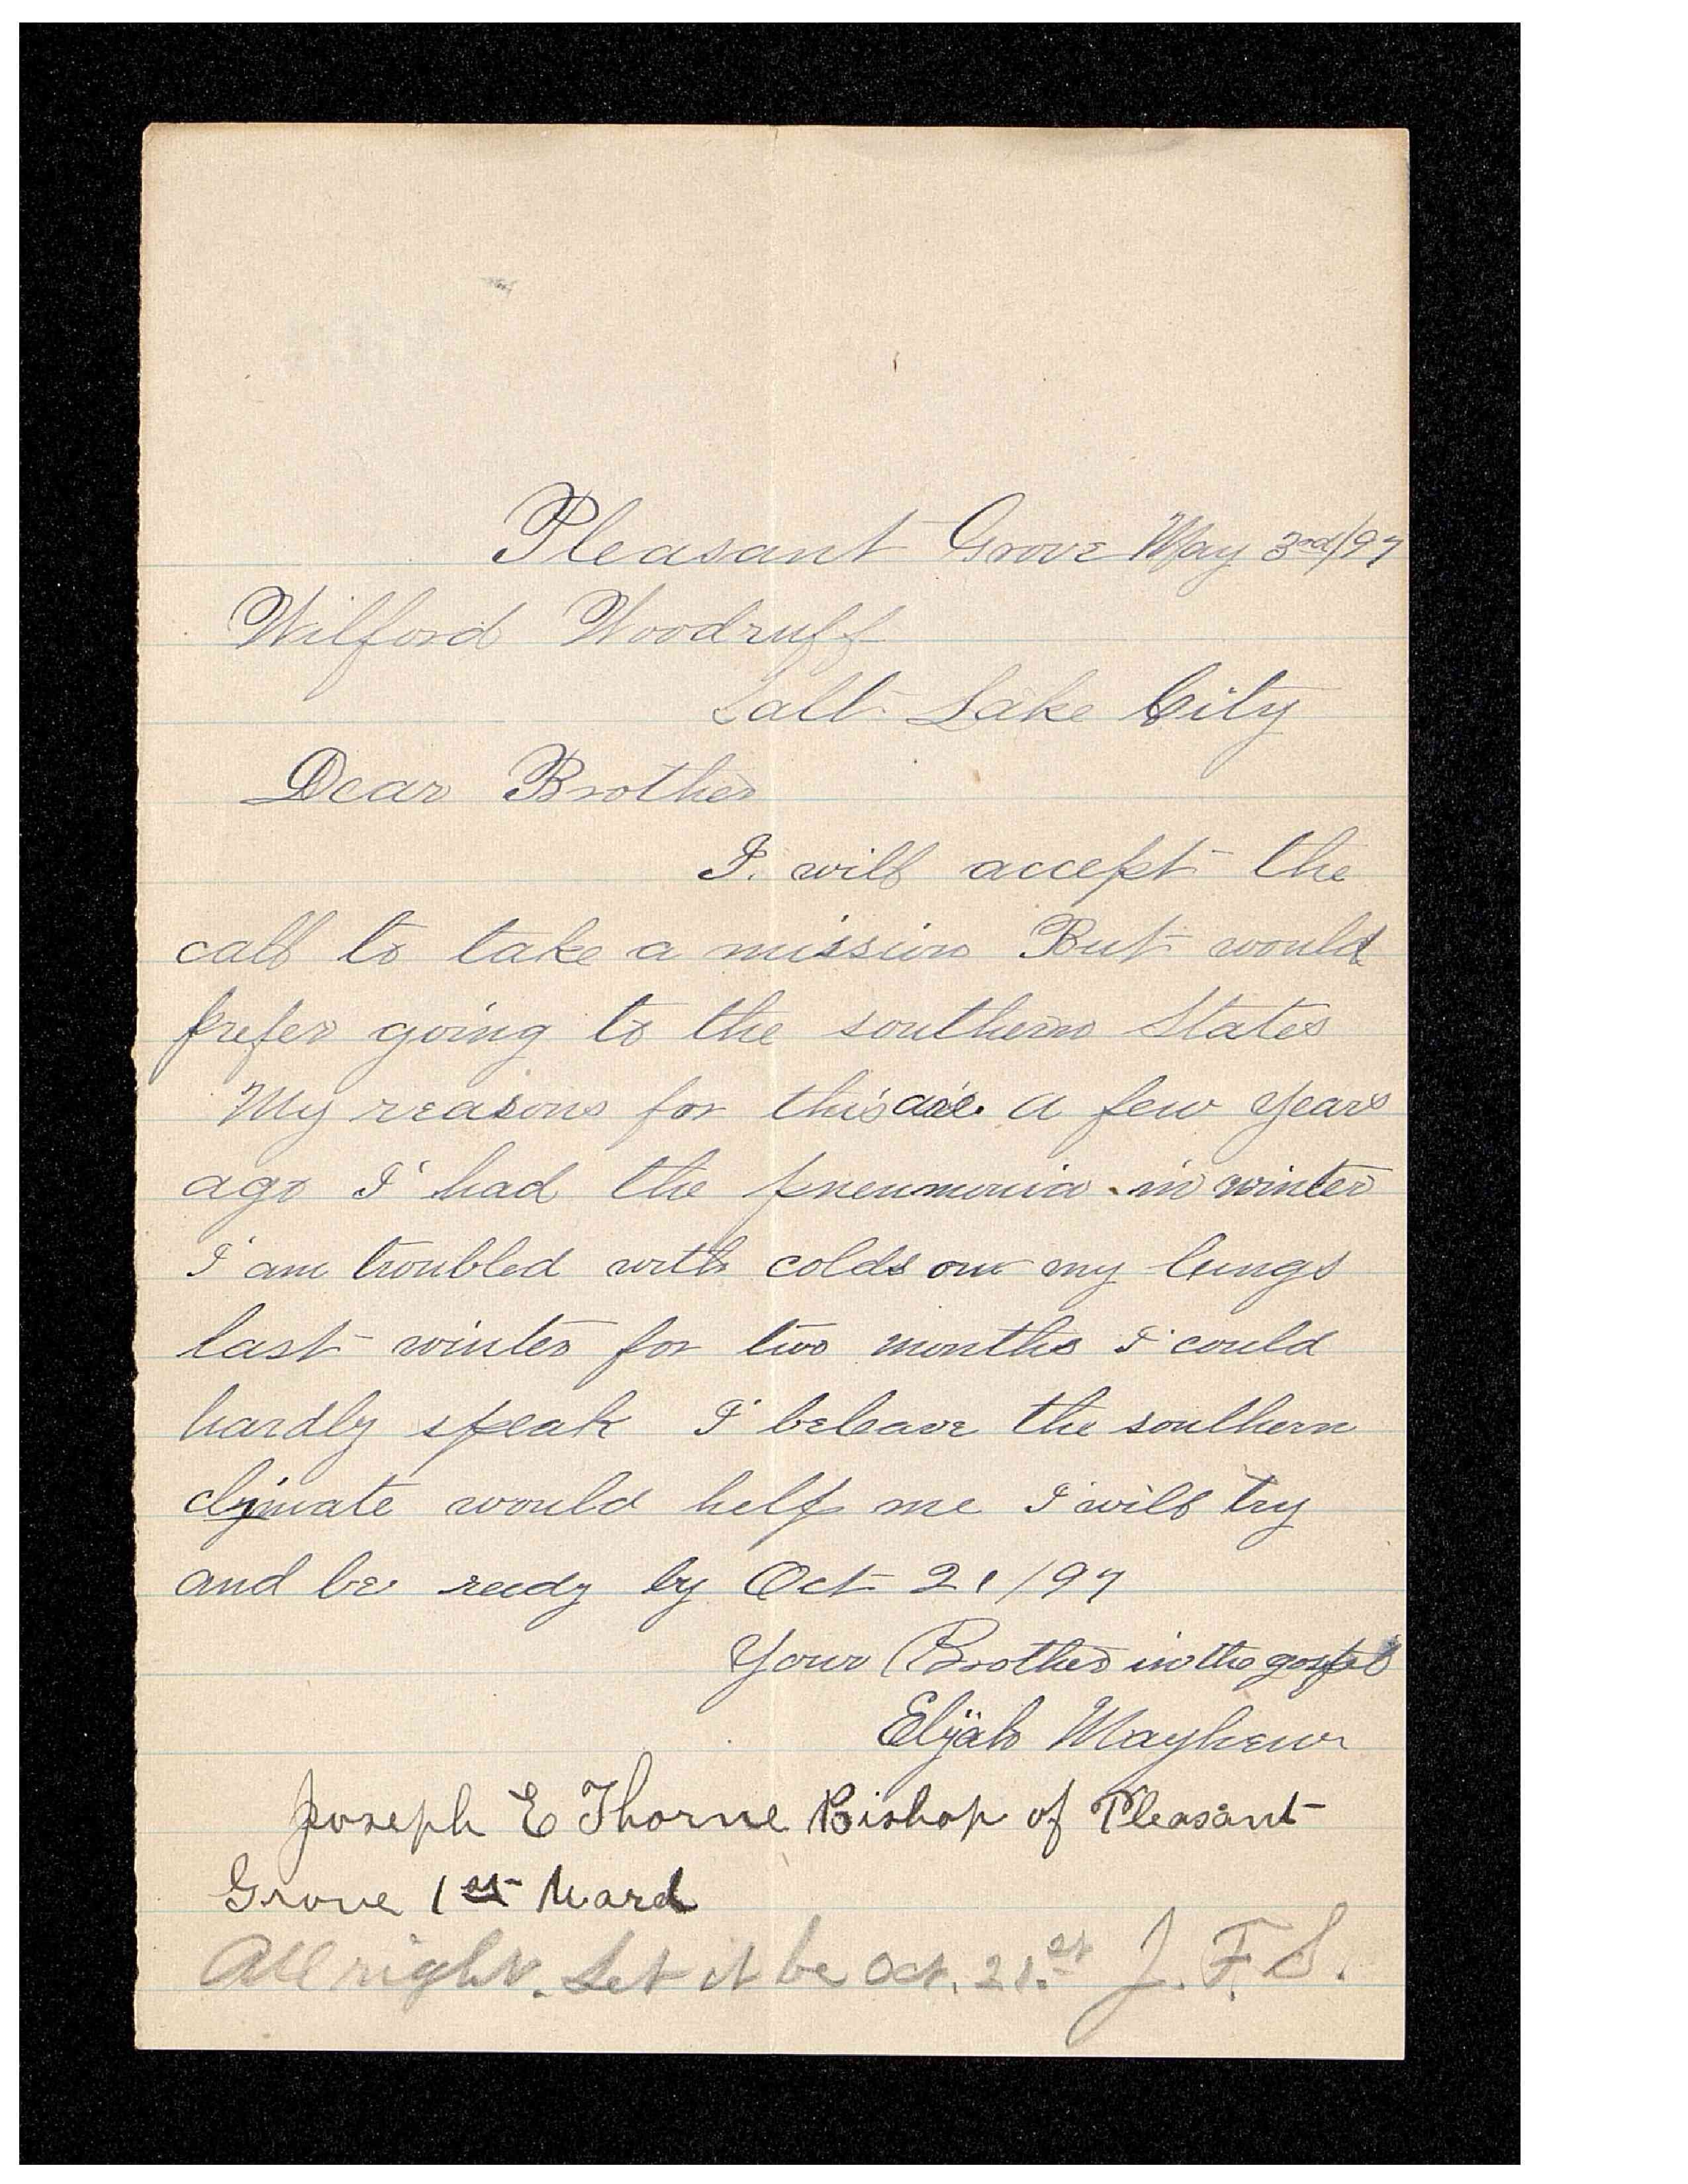 Pleasant Grove May 3rd/97
Wilford Woodruff
Salt Lake City
Dear Brother
I. will accept the
call to take a mission But would
prefer going to the southern States
My reasons for this are. a few years
ago I had the pneumonia in winter
I am troubled with colds on my lungs
last winter for two months I could
hardly speak I beleave the southern
climate would help me I will try
and be reedy by Oct 21/97
Your Brother in the gospel
Elijah Mayhew
Joseph E Thorne Bishop of Pleasant
Grove 1st Ward
All right. Let it be Oct. 21.st J. F. S.